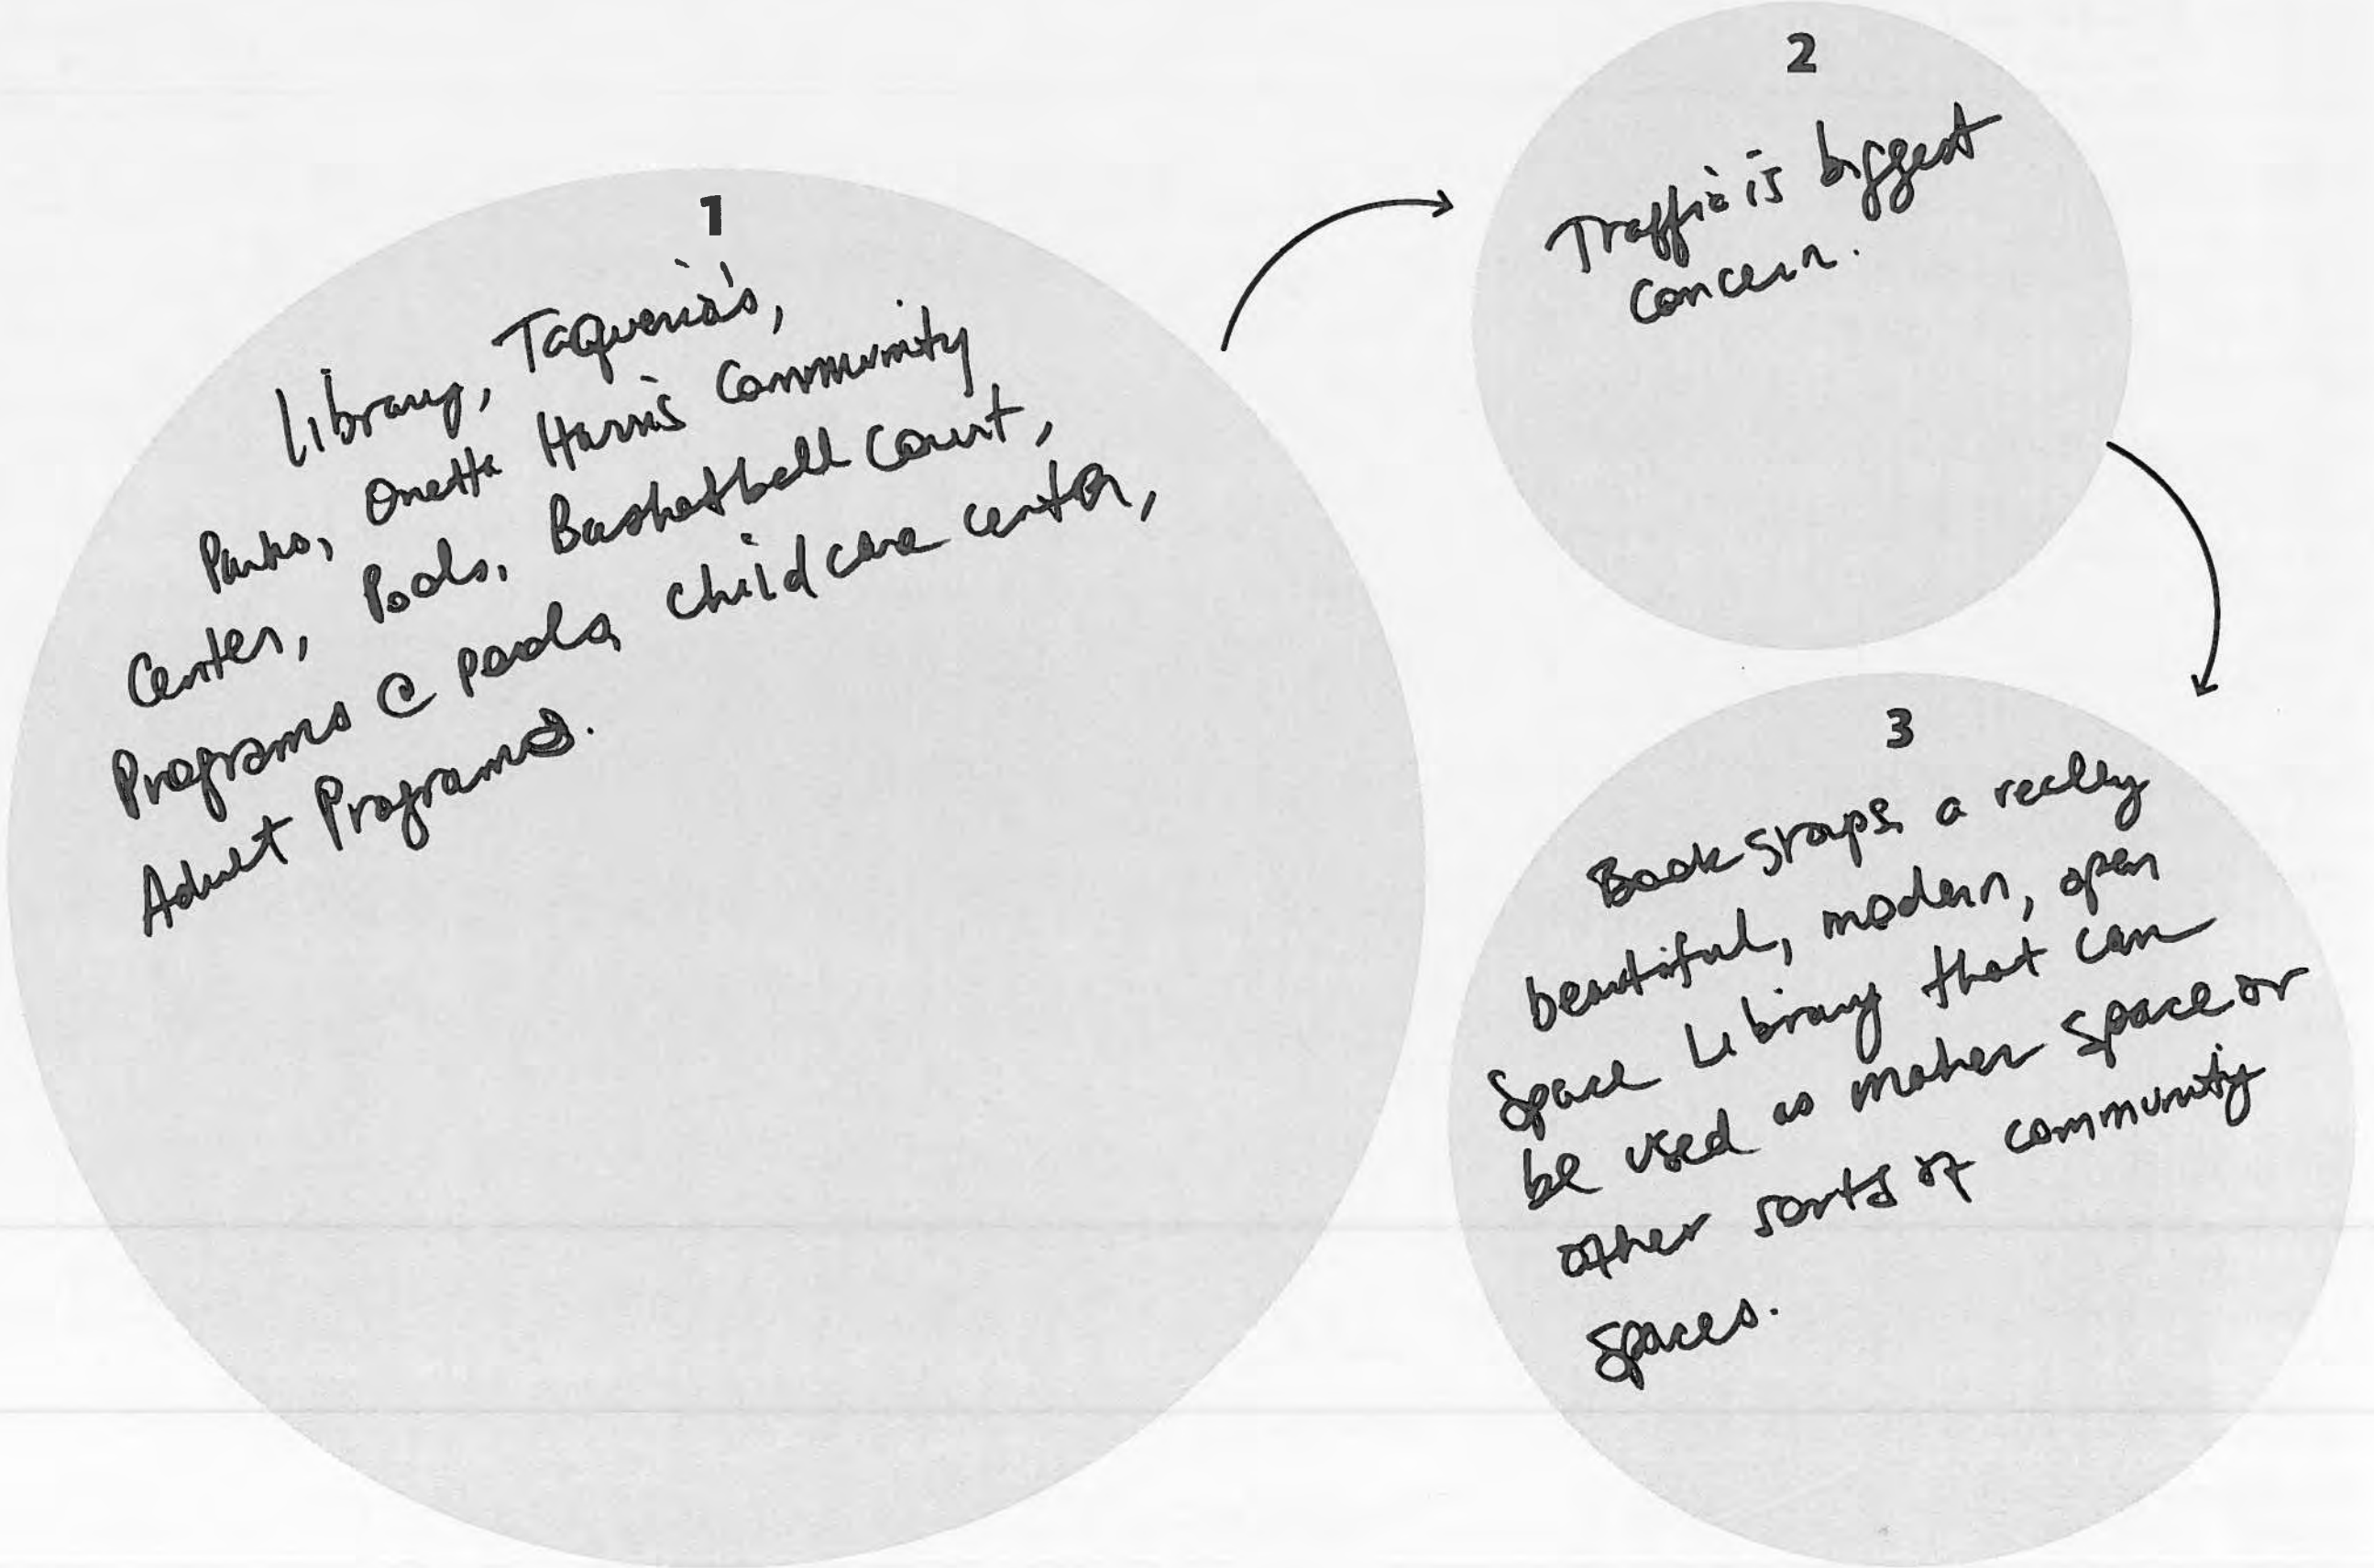 1
Library, Taqueria's,
Parks, Onetta Harris Community
Center, Pools, Basketball Court,
Programs @ pools, child care center,
Adult Programs.
2
Traffic is biggest
concern.
3
Book stops, a really
beautiful, modern, open
space Library that can
be used as maker space or
other sorts of community
spaces.